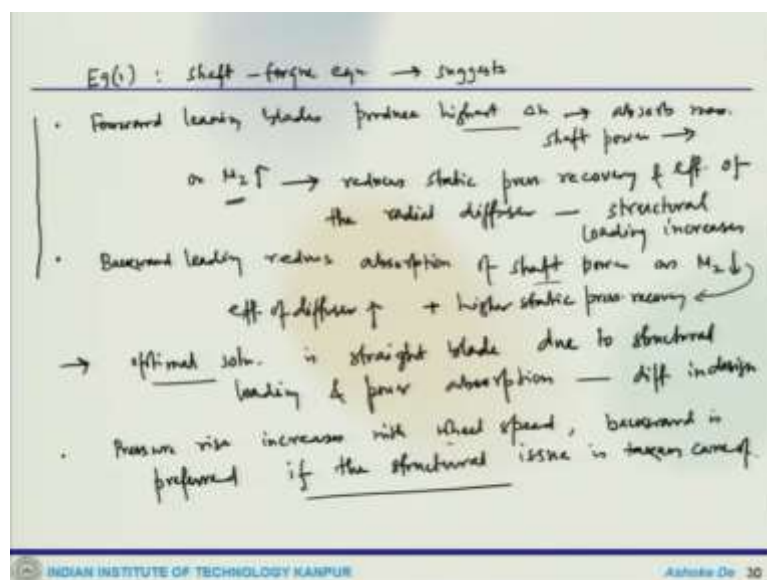 Eq(1) : shaft - torque eqn → suggests
• Forward leaning blades produce highest Δh → absorb max.
shaft power →
as M2↑ → reduces static press recovery & eff. of
the radial diffuser — structural
loading increases
• Backward leading reduces absorption of shaft power as M2↓
eff. of diffuser ↑ + higher static press recovery
→ optimal soln. is straight blade due to structural
loading & power absorption — diff in design
• Pressure rise increases with wheel speed, backward is
preferred if the structural issue is taken care of.
INDIAN INSTITUTE OF TECHNOLOGY KANPUR
Ashoke De 30